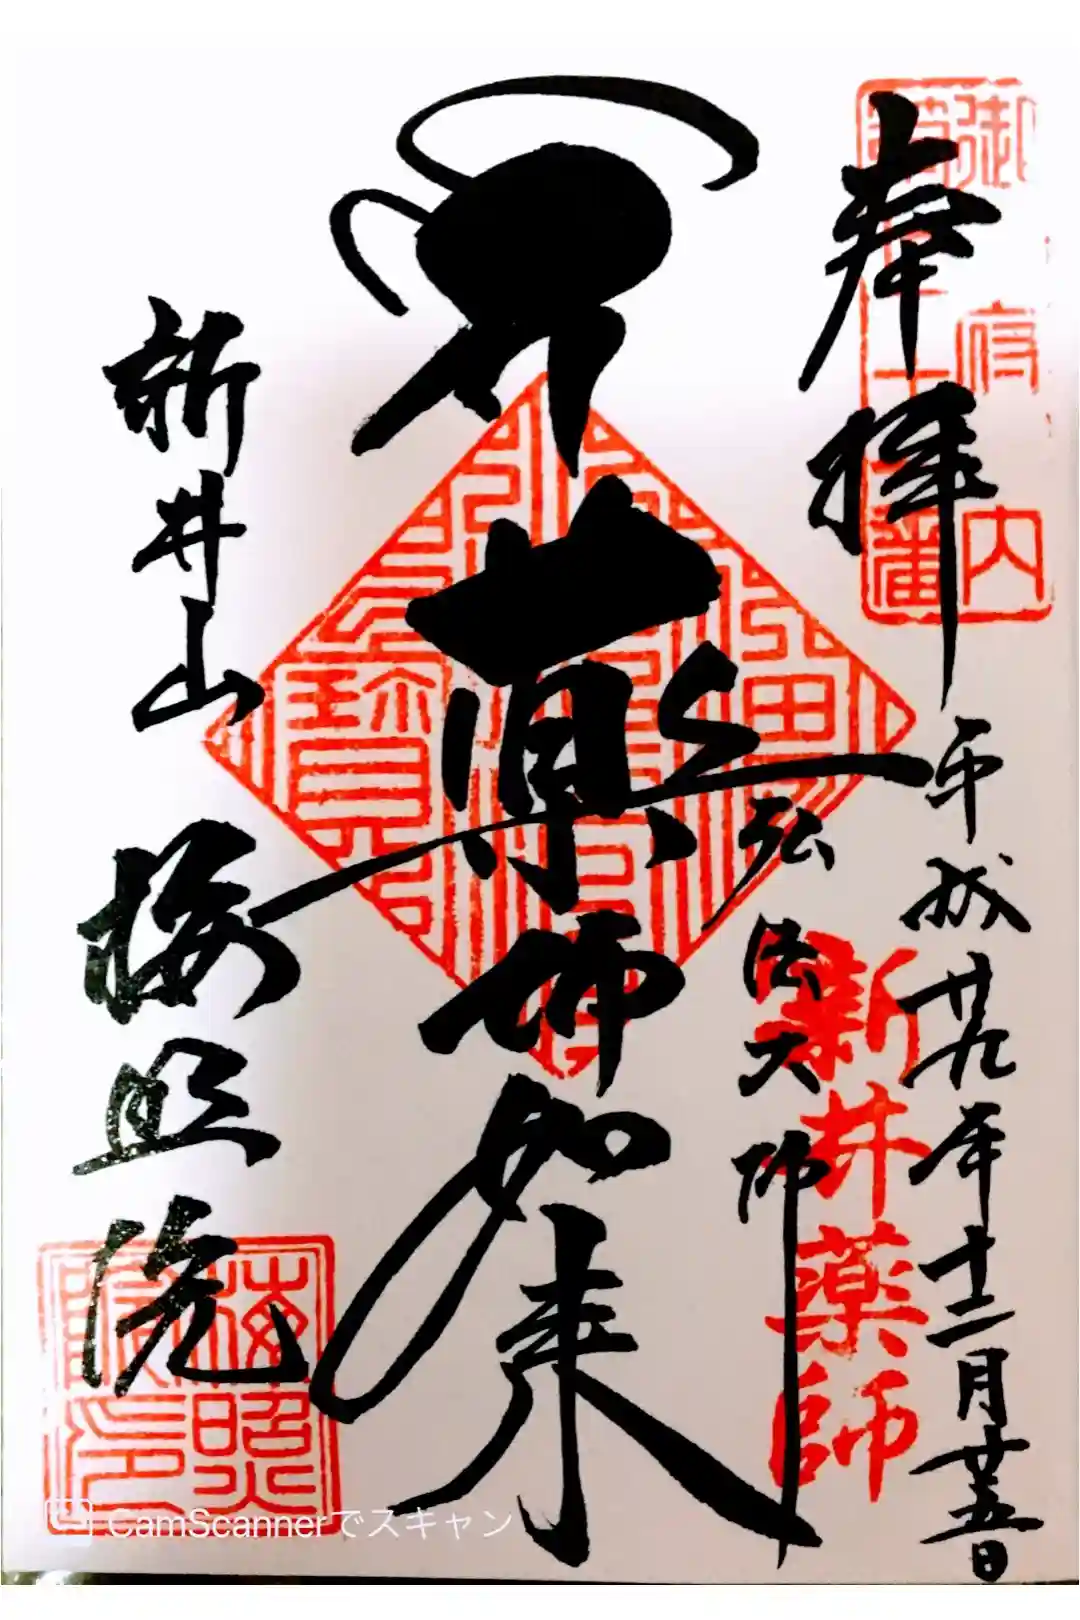 奉拝
平成廿九年十二月廿五日
御府内
番
新井薬師
弘法大師
薬師如来
新井山
梅照院
梅照院印
CamScannerでスキャン